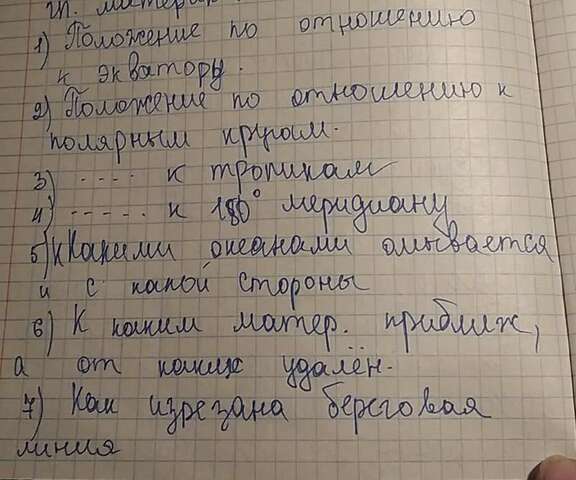 1) Положение по отношению
к экватору.
2) Положение по отношению к
полярным кругам.
3) .... к тропикам
4) ..... к 180° меридиану
5) Какими океанами омывается
и с какой стороны
6) К каким матер. приближ,
а от каких удалён.
7) Как изрезана береговая
линия